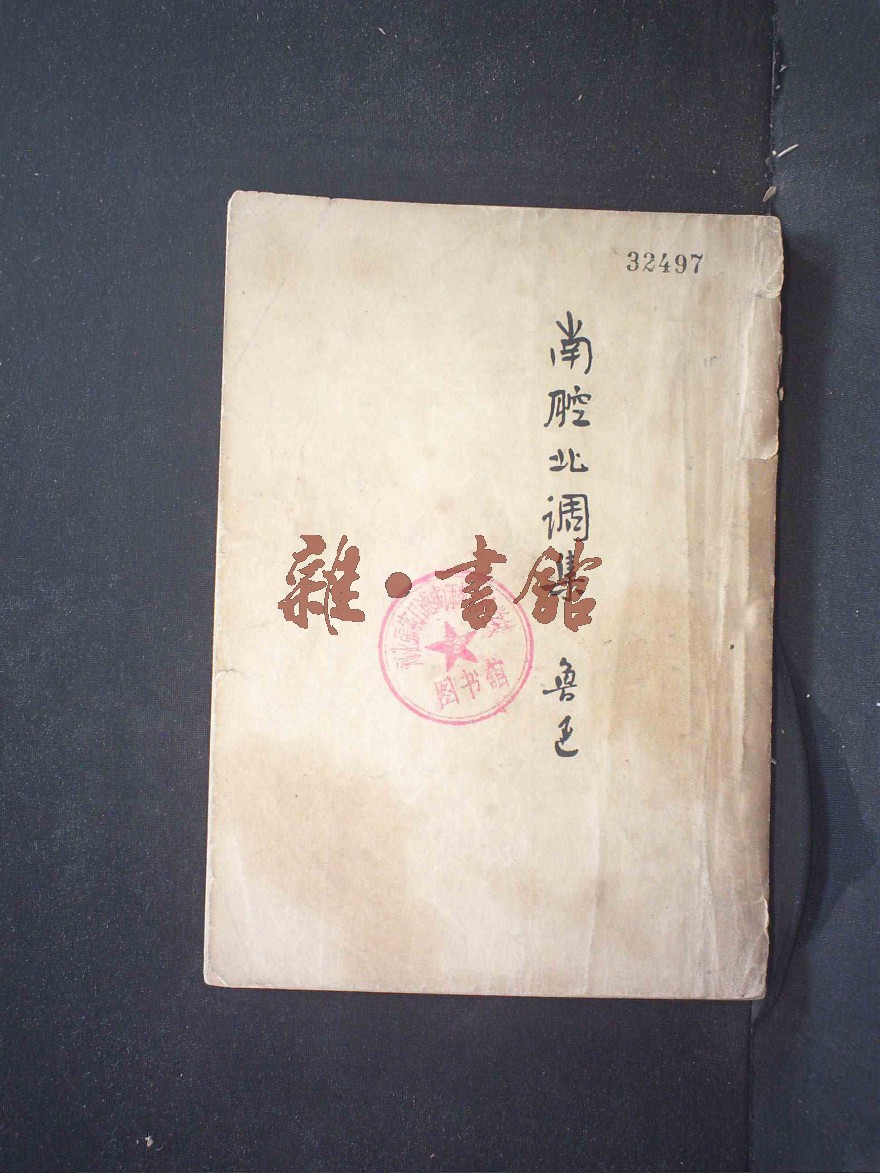 32497
南腔北调集 鲁迅
雜·書館
图书馆